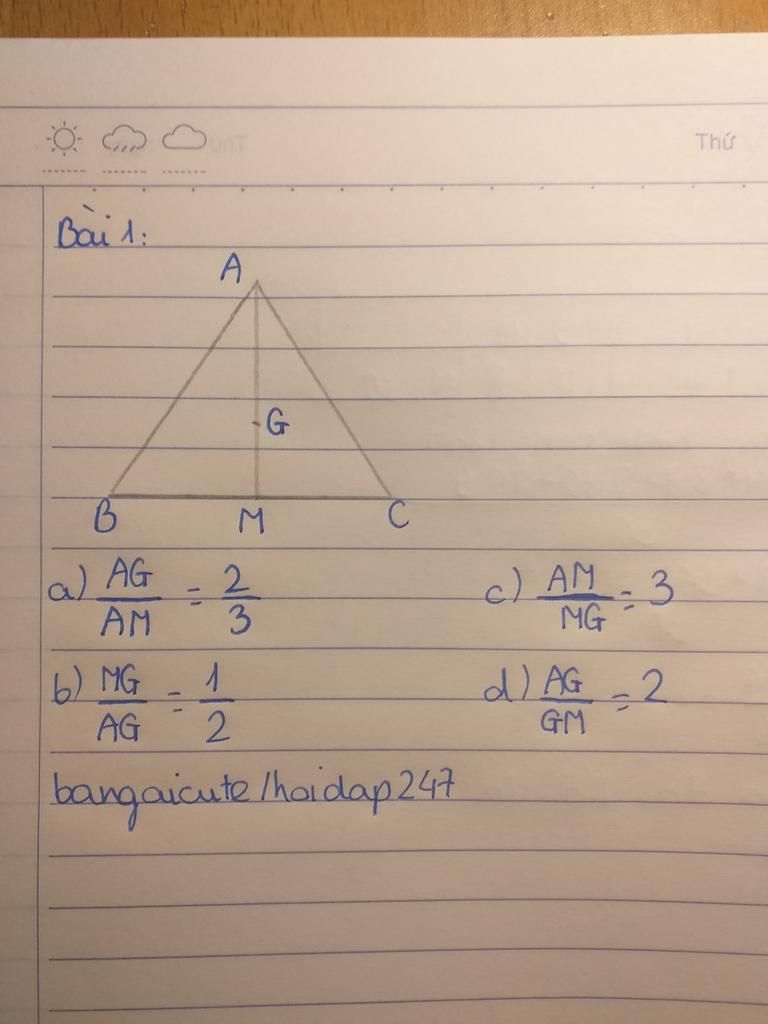 Thứ
Bài 1:
A
G
B M C
a) AG/AM = 2/3 c) AM/MG = 3
b) MG/AG = 1/2 d) AG/GM = 2
bangaicute/hoidap247